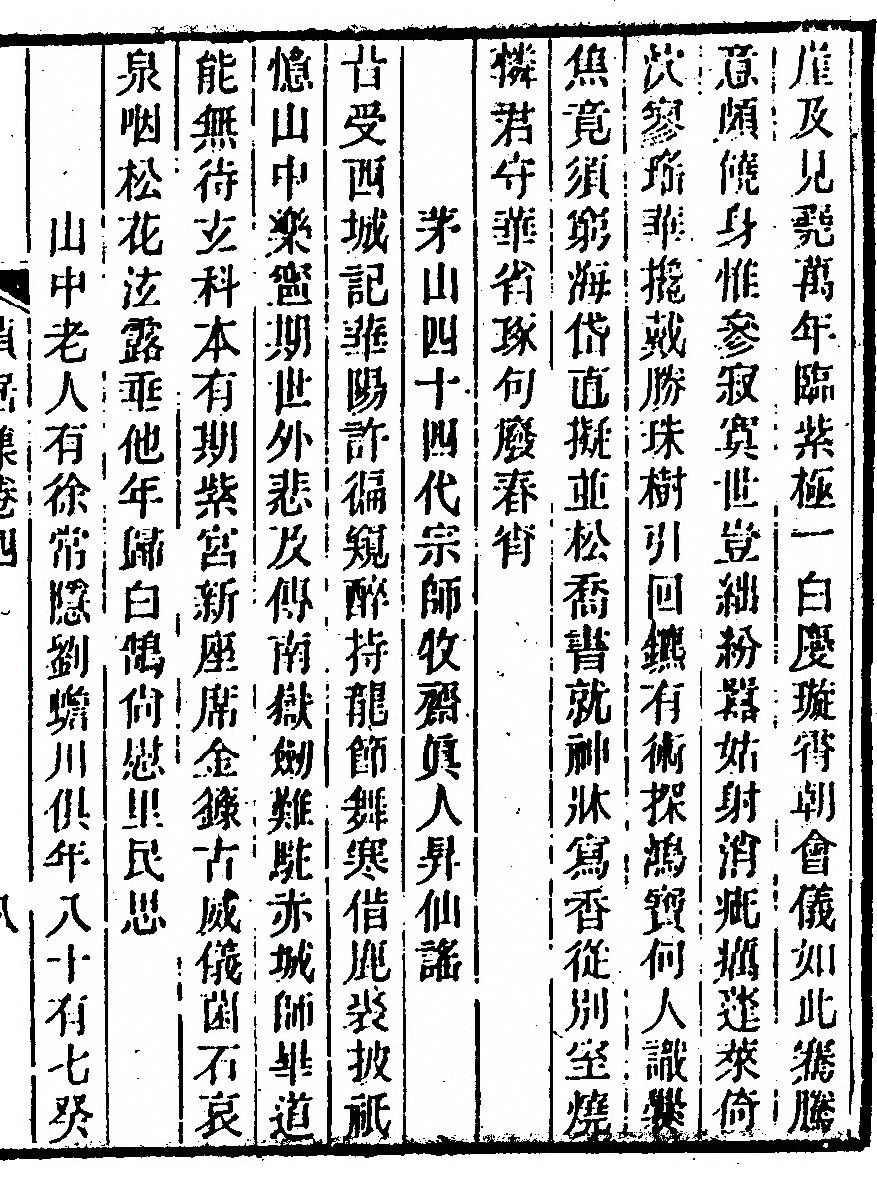 崖及見堯萬年臨紫極一白慶璇霄朝會儀如此騫騰
意頗饒身惟參寂寞世豈絀紛囂姑射消疵癘蓬萊倚
泬寥瑤華擥戴勝珠樹引回鑣有術探鴻寶何人識
焦竟須窮海岱直擬並松喬書就神牀寫香從別室燒
憐君守華省琢句廢春宵
茅山四十四代宗師牧齋眞人昇仙謠
昔受西城記華陽許徧窺醉持龍節舞寒借鹿裘披祇
憶山中樂寧期世外悲及傳南嶽劒難駐赤城師畢道
能無待玄科本有期紫宮新座席金籙古威儀菌石哀
泉咽松花泫露垂他年歸白鵠尙慰里民思
山中老人有徐常隱劉蟾川俱年八十有七癸
貞居集卷四
八